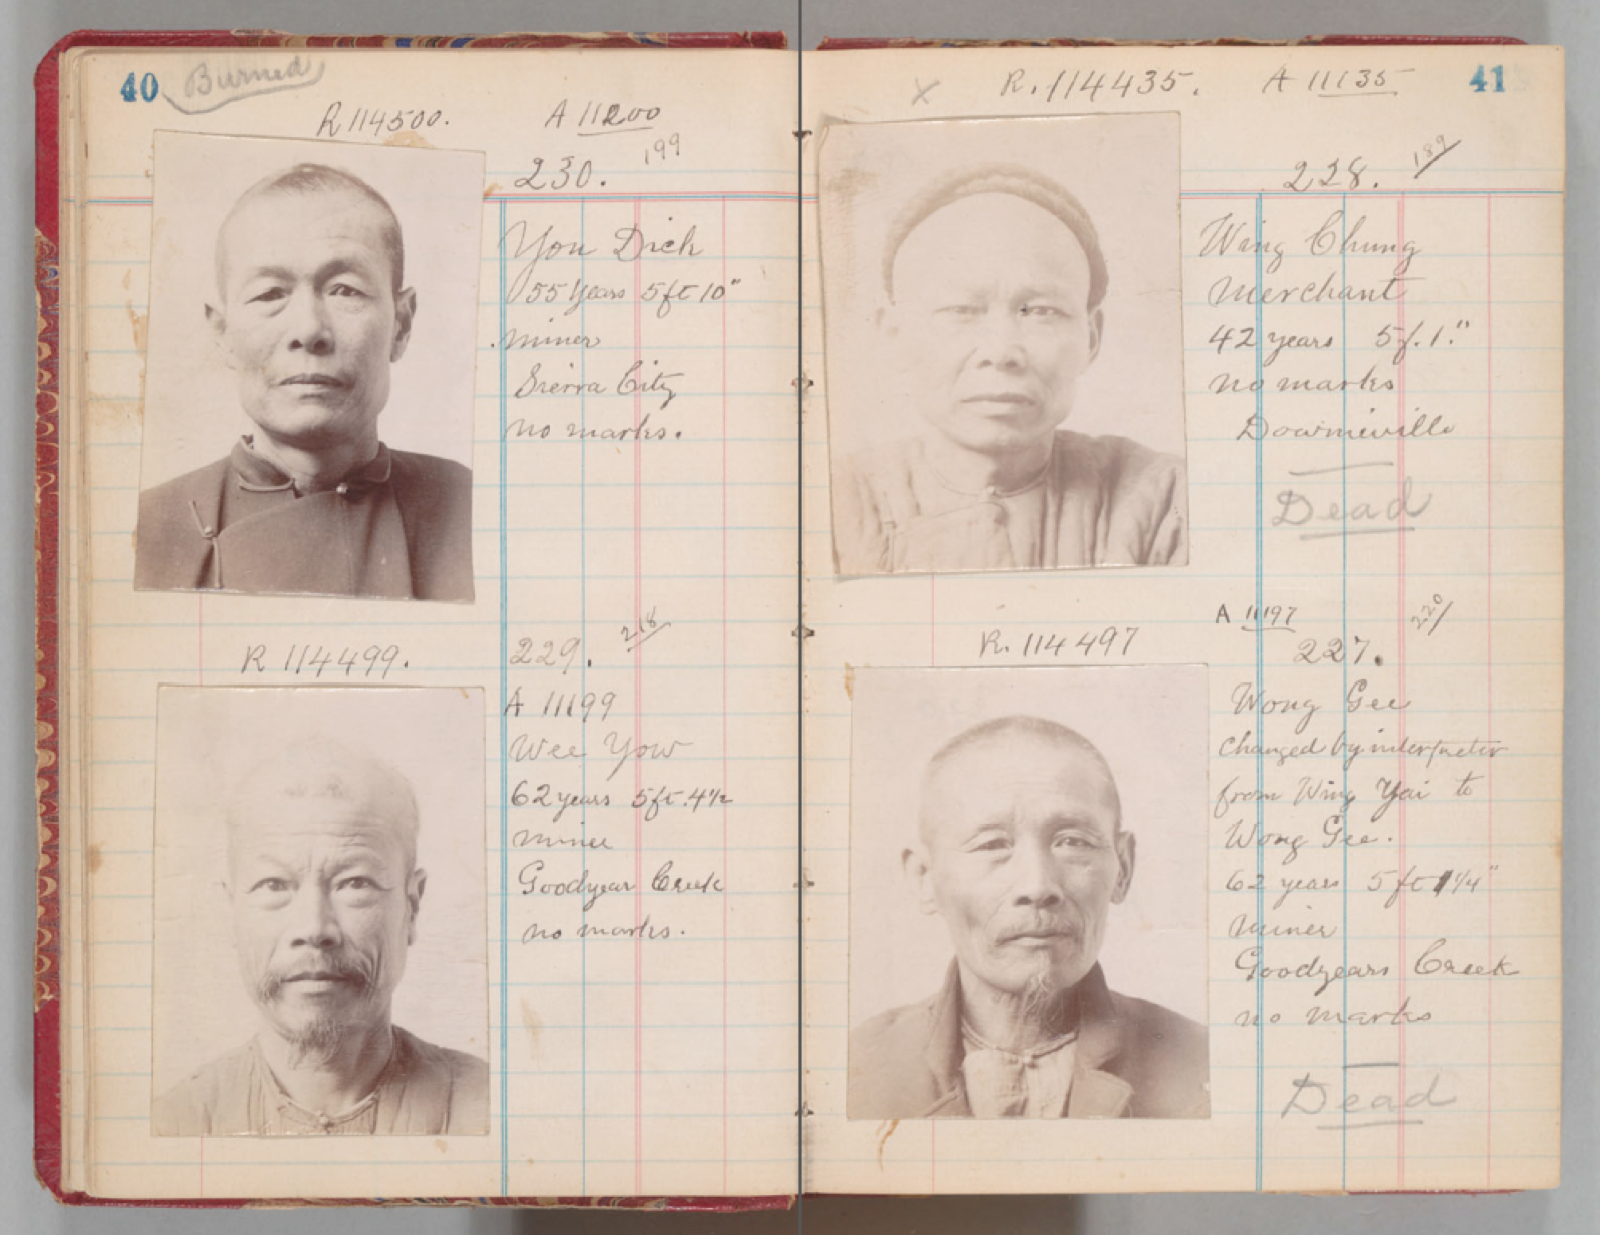 40 Burned
R 114500. A 11200
199
230.
You Dick
55 Years 5ft 10"
miner
Sierra City
no marks.
R 114499.
229. 218
A 11199
Wee Yow
62 years 5ft. 4½
miner
Goodyear Creek
no marks.
x R. 114435. A 11135 41
228. 189
Wing Chung
Merchant
42 years 5f. 1."
no marks
Downieville
Dead
A 11197 220
R. 114497 227.
Wong Gee
changed by interpreter
from Wing Yai to
Wong Gee.
62 years 5ft 1¼"
miner
Goodyears Creek
no marks
Dead